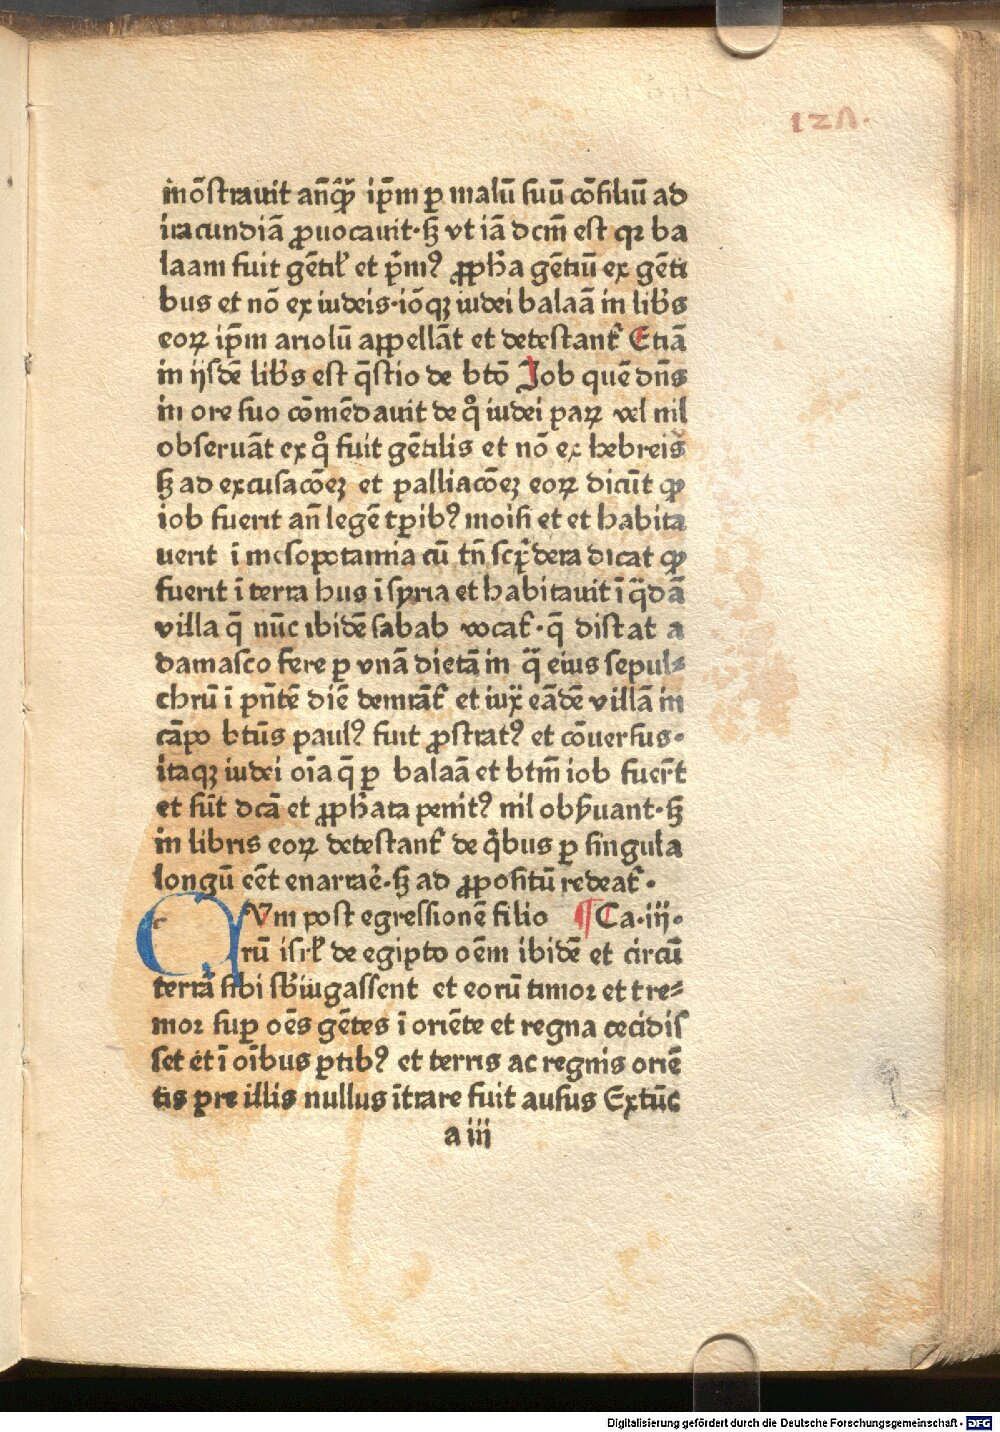 12Λ.
mōstrauit an̄q̄ꝫ ip̄m ꝑ malū suū cōsiliū ad
iracundiā ꝓuocauit·ꝫ vt iā dc̄m est qꝛ ba
laam fuit gētil' et p̄m⁹ ꝓph̄a gētiū ex gēti
bus et nō ex iudeis·iōqꝫ iudei balaā in lib̄s
eoꝝ ip̄m ariolū appellāt et detestant᷑ Etiā
in ijsdē lib̄s est q̄stio de btō Job quē dn̄s
in ore suo cōmēdauit de qͦ iudei paꝝ vel nil
obseruāt ex qͦ fuit gētilis et nō ex hebreis
ꝫ ad excusacōeꝫ et palliacōeꝫ eoꝝ dicūt ꝙ
iob fuerit an̄ legē tꝑib⁹ moisi et et habita
uerit ī mesopotamia cū tn̄ scp̄dera dicat ꝙ
fuerit ī terra hus ī syria et habitauit ī q̄dā
villa q̄ nūc ibidē sabab vocat᷑·q̄ distat a
damasco fere ꝑ vnā dietā in q̄ eius sepul⸗
chrū ī pn̄tē diē demrāt᷑ et iux̄ eādē villā in
cāpo bt̄us paul⁹ fuit ꝓstrat⁹ et cōuersus·
itaqꝫ iudei oīa q̄ ꝑ balaā et bt̄m iob fuer̄t
et sūt dcā et ꝓph̄ata penit⁹ nil obẜuant·ꝫ
in libris eoꝝ detestant᷑ de qͥbus ꝑ singula
longū eēt enarrar̄e·ꝫ ad ꝓpositū redeat᷑·
CVm post egressionē filio ¶Ca·iij·
rū isrl' de egipto oēm ibidē et circū
terrā sibi sb̄iugassent et eorū timor et tre⸗
mor suꝑ oēs gētes ī oriēte et regna cecidis
set et ī oībus ꝑtib⁹ et terris ac regnis oriē
tis pre illis nullus ītrare fuit ausus Extūc
a iij
Digitalisierung gefördert durch die Deutsche Forschungsgemeinschaft - DFG